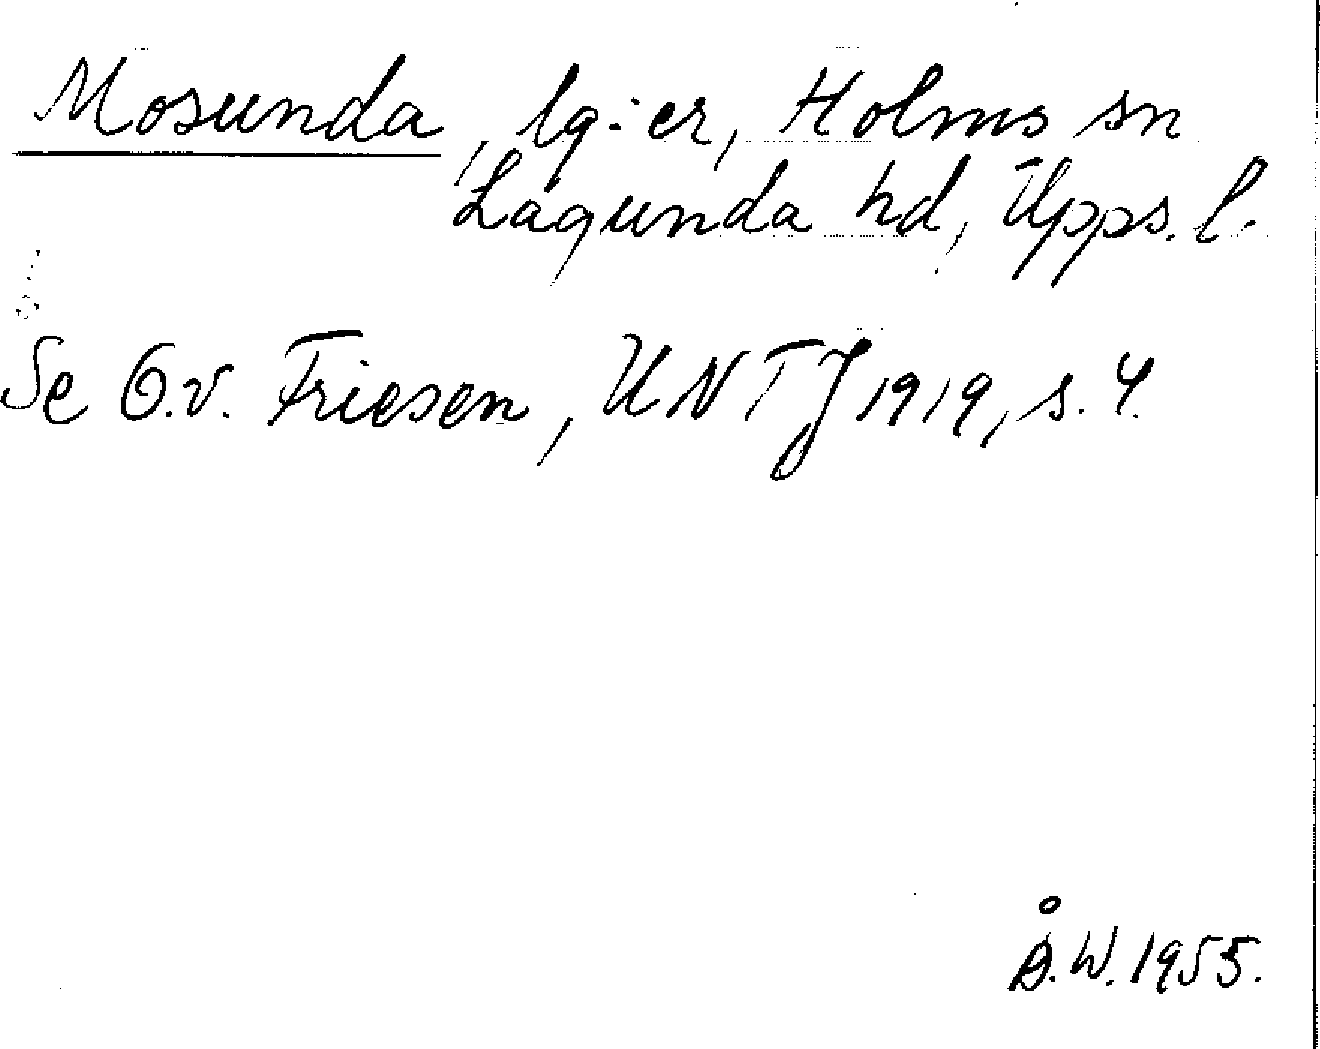 Mosunda, lg:er, Holms sn
Lagunda hd, Upps. l.
Se O.v. Friesen, UNTJ 1919, s. 4.
Å.W. 1955.